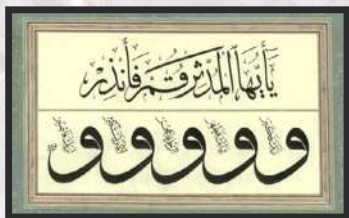 يَأَيُّهَا الْمُدَّثِّرُ قُمْ فَأَنْذِرْ
و و و و و